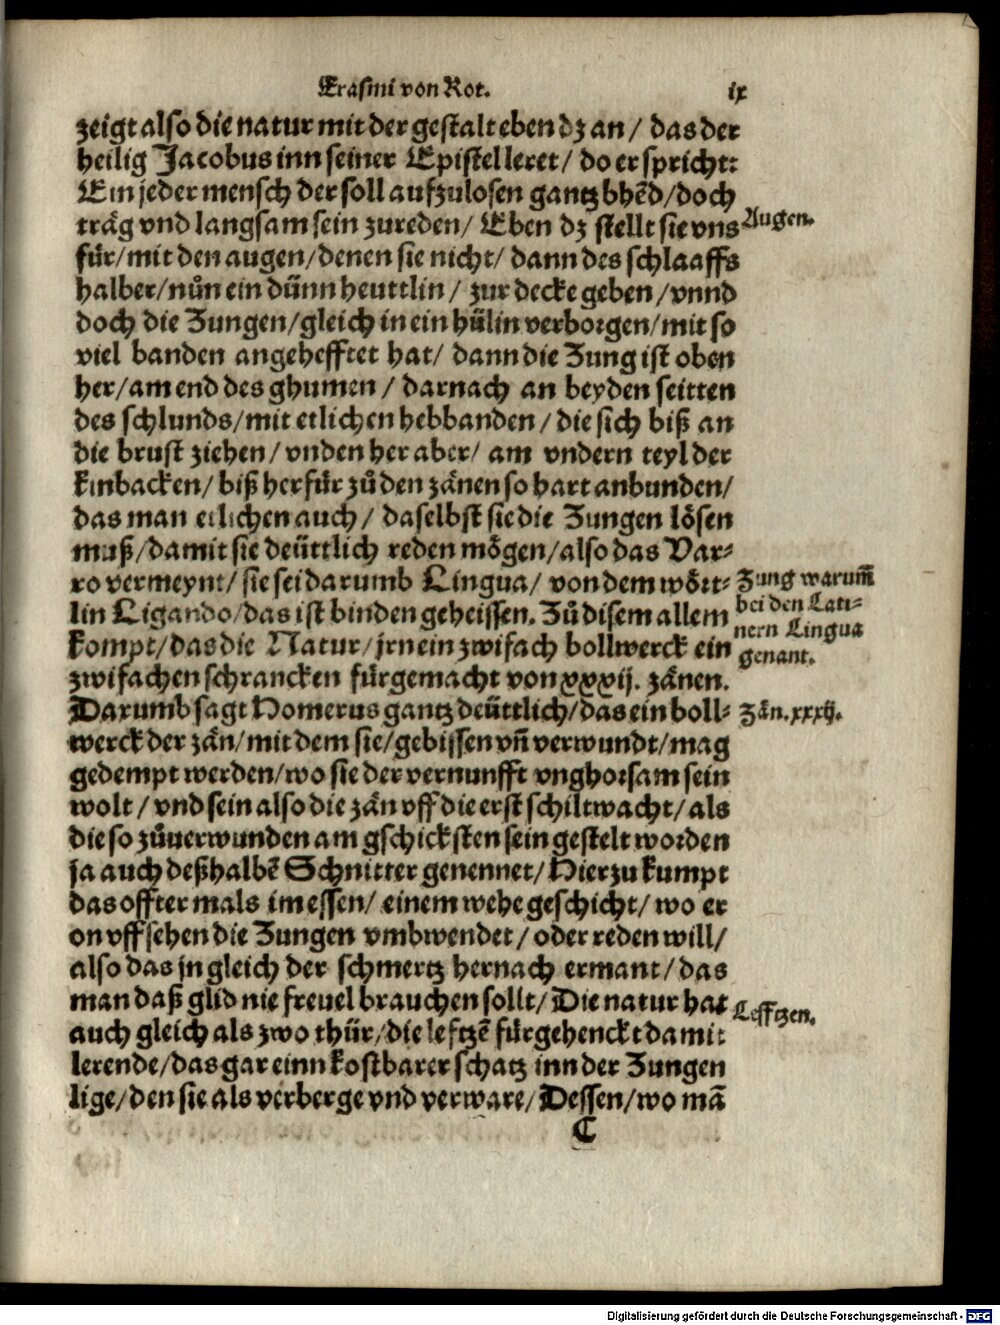 Erasmi von Rot. ix
zeigt also die natur mit der gestalt eben dz an / das der
heilig Jacobus inn seiner Epistel leret / do er spricht:
Ein jeder mensch der soll auf zulosen gantz bhẽd / doch
träg vnd langsam sein zureden / Eben dz stellt sie vns
Augen.
für / mit den augen / denen sie nicht / dann des schlaaffs
halber / nůn ein dünn heuttlin / zur decke geben / vnnd
doch die Zungen / gleich in ein hülin verborgen / mit so
viel banden angehefftet hat / dann die Zung ist oben
her / am end des ghumen / darnach an beyden seitten
des schlunds / mit etlichen hebbanden / die sich biß an
die brust ziehen / vnden her aber / am vndern teyl der
kinbacken / biß herfür zů den zänen so hart anbunden /
das man etlichen auch / daselbst sie die Zungen lösen
muß / damit sie deüttlich reden mögen / also das Var⸗
ro vermeynt / sie sei darumb Lingua / von dem wört⸗
Zung warum̃
bei den Lati⸗
nern Lingua
genant.
lin Ligando / das ist binden geheissen. Zů disem allem
kompt / das die Natur / jrn ein zwifach bollwerck ein
zwifachen schrancken fürgemacht von xxxij. zänen.
Darumb sagt Homerus gantz deüttlich / das ein boll⸗
Zän. xxxij.
werck der zän / mit dem sie / gebissen vñ verwundt / mag
gedempt werden / wo sie der vernunfft vnghorsam sein
wolt / vnd sein also die zän vff die erst schiltwacht / als
die so zůuerwunden am gschicksten sein gestelt worden
ja auch deßhalbẽ Schnitter genennet / Hierzu kumpt
das offtermals im essen / einem wehe geschicht / wo er
on vffsehen die Zungen vmbwendet / oder reden will /
also das jn gleich der schmertz hernach ermant / das
man daß glid nie freuel brauchen sollt / Die natur hat
Lefftzen.
auch gleich als zwo thür / die leftzẽ fürgehenckt damit
lerende / das gar einn kostbarer schatz inn der Zungen
lige / den sie als verberge vnd verware / Dessen / wo mã
C
Digitalisierung gefördert durch die Deutsche Forschungsgemeinschaft - DFG